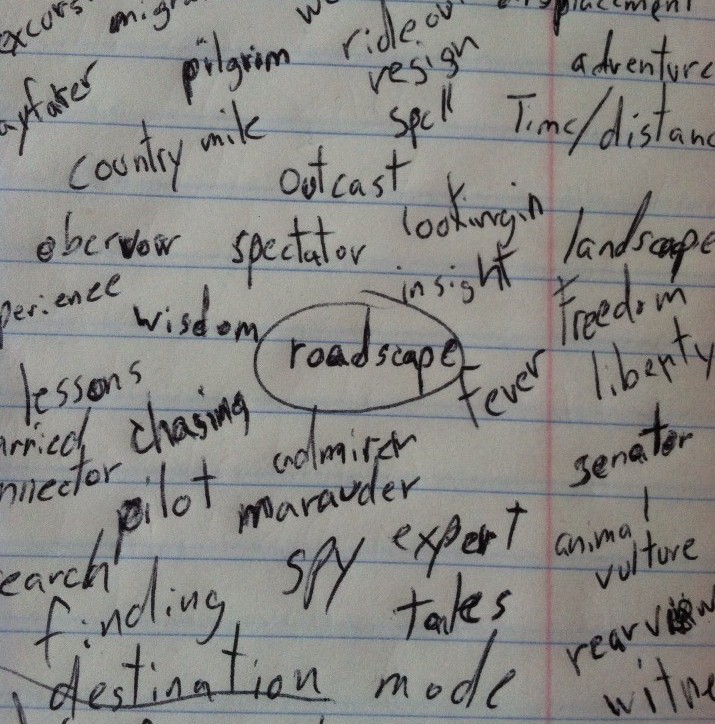 excurs
displacement
pilgrim
ride out
resign
adventure
ayfarer
spell
Time/distanc
country mile
outcast
lookingin
obervow spectator
landscape
insight
perience
freedom
wisdom
roadscape
liberty
fever
lessons
chasing
arried
admirer
senator
nnector
pilot marauder
expert
animal
spy
vulture
earch
finding
tales
rearview
destination mode
witne